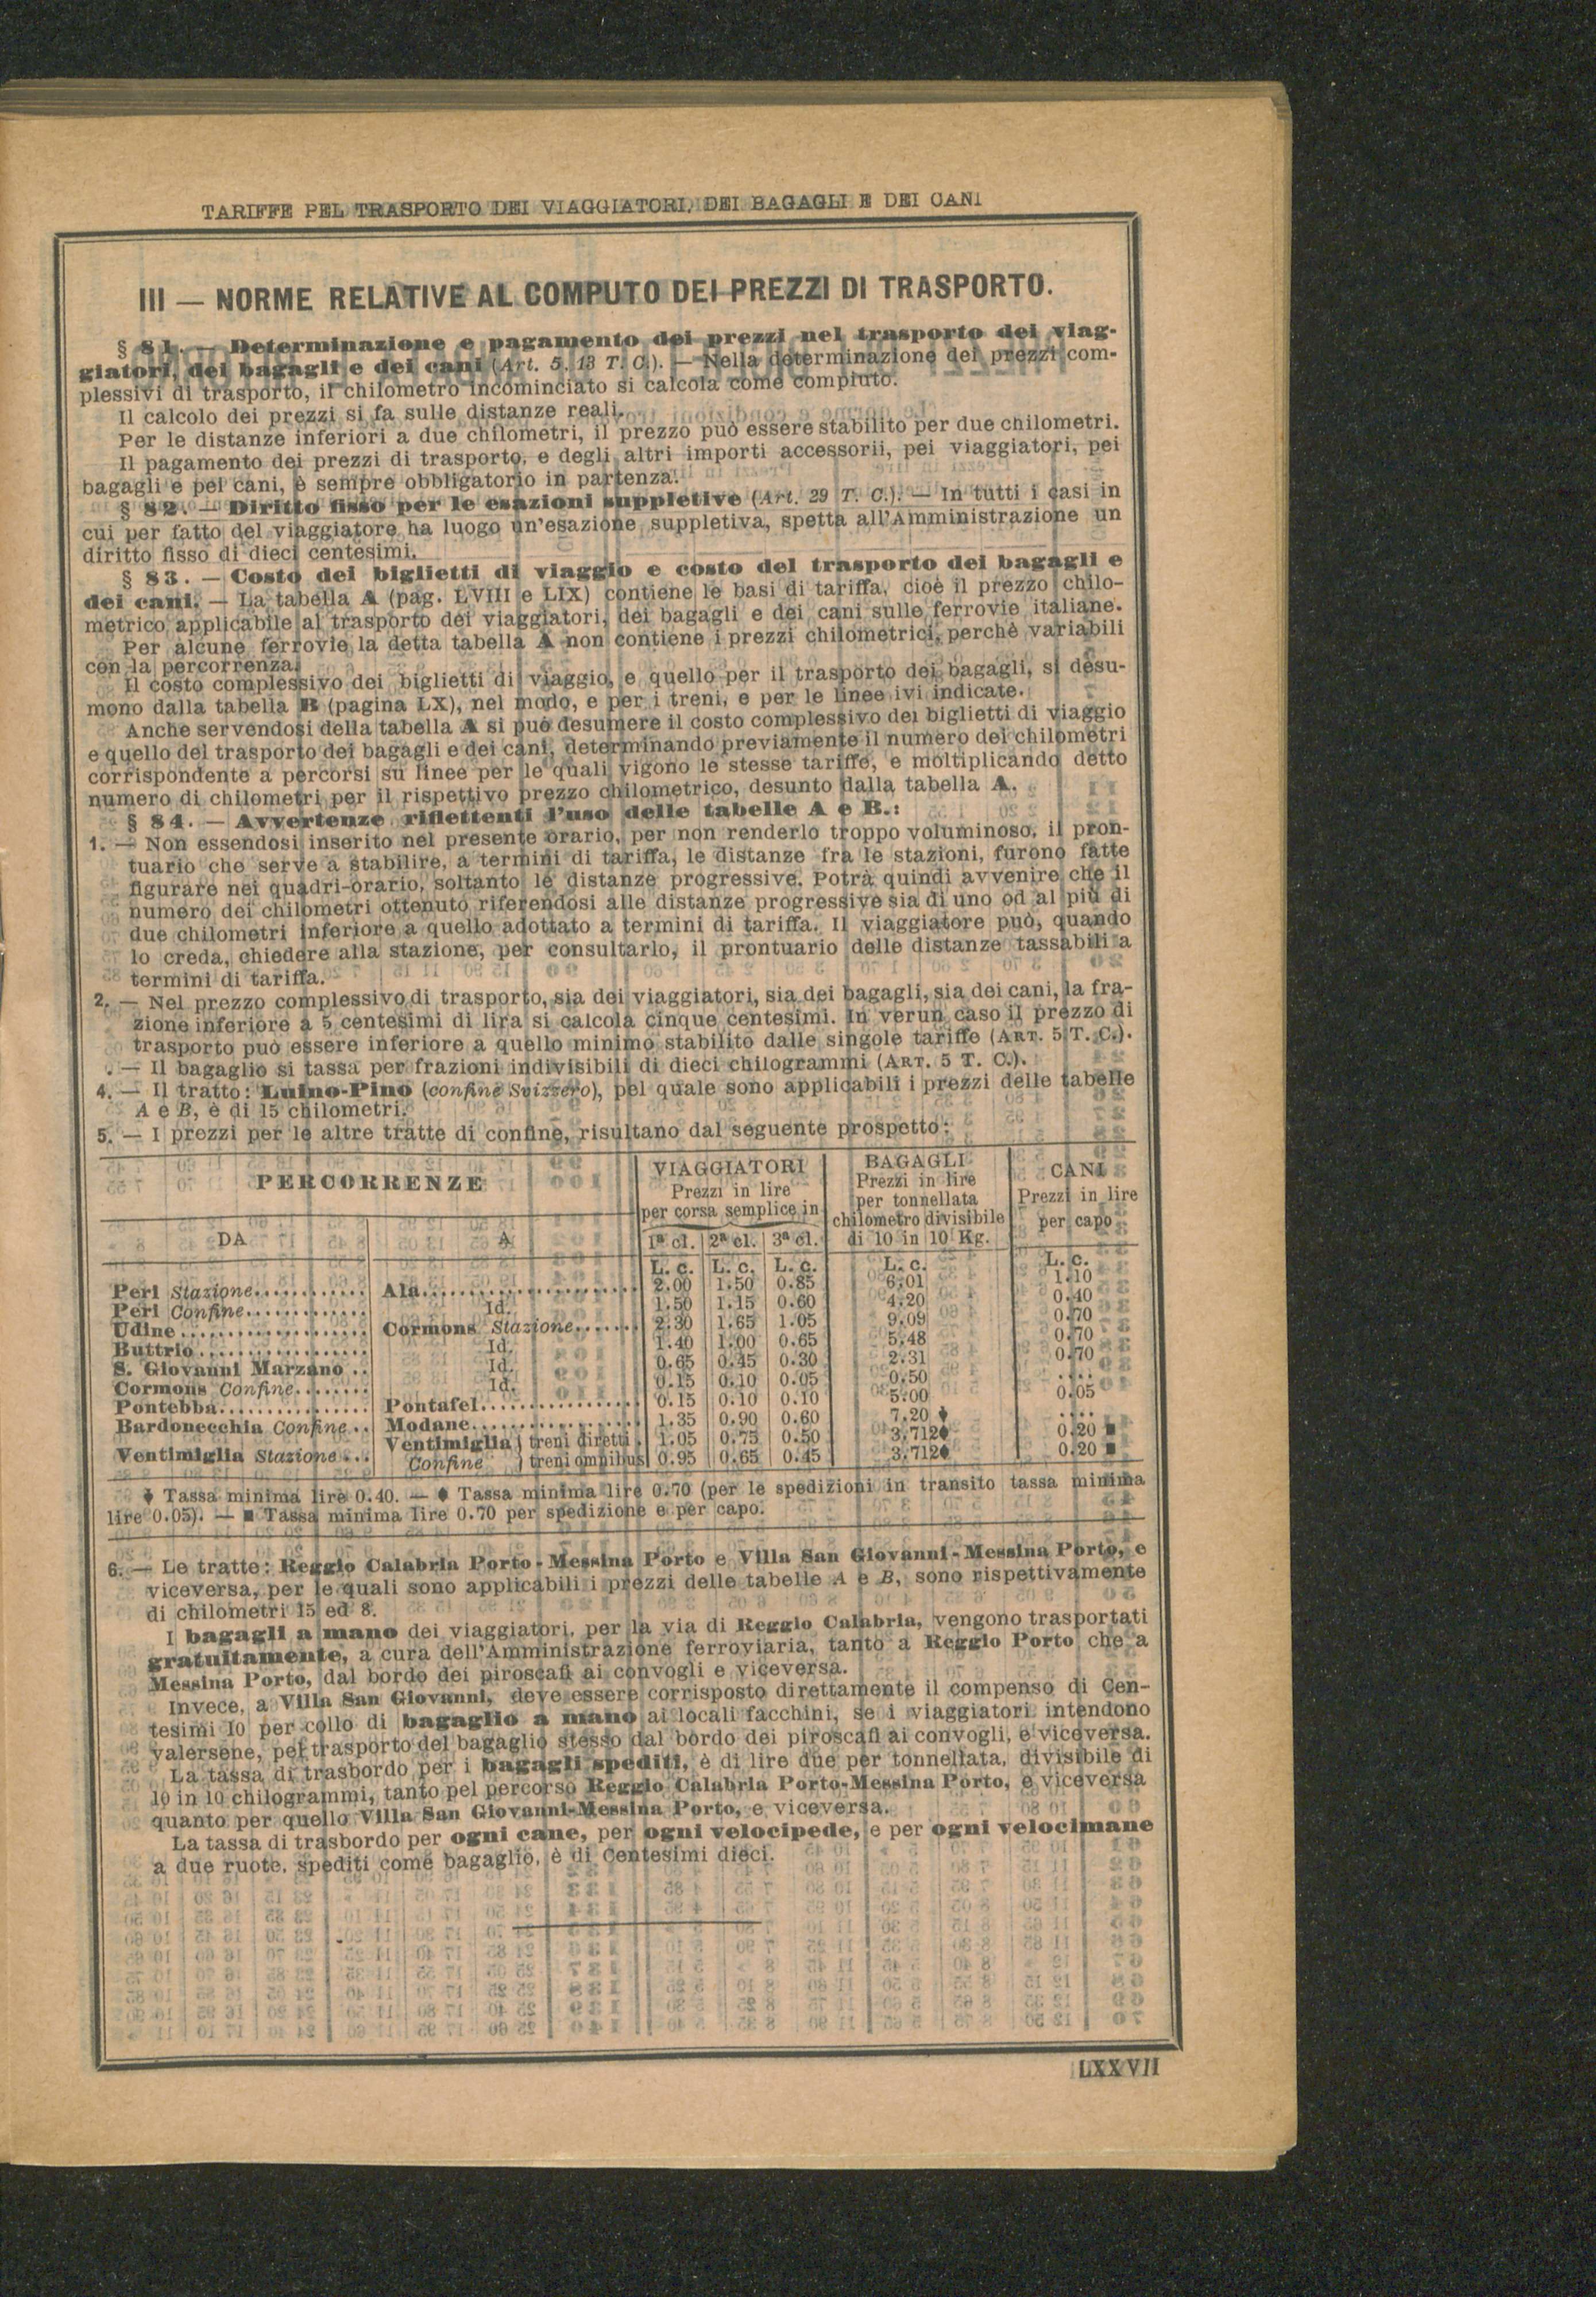 TARIFFE PEL TRASPORTO DEI VIAGGIATORI, DEI BAGAGLI E DEI CANI
III — NORME RELATIVE AL COMPUTO DEI PREZZI DI TRASPORTO.
§ 81. — Determinazione e pagamento dei prezzi nel trasporto dei viag-
giatori, dei bagagli e dei cani (Art. 5. 13 T. C.). — Nella determinazione dei prezzi com-
plessivi di trasporto, il chilometro incominciato si calcola come compiuto.
Il calcolo dei prezzi si fa sulle distanze reali.
Per le distanze inferiori a due chilometri, il prezzo può essere stabilito per due chilometri.
Il pagamento dei prezzi di trasporto, e degli altri importi accessorii, pei viaggiatori, pei
bagagli e pei cani, è sempre obbligatorio in partenza.
§ 82. — Diritto fisso per le esazioni suppletive (Art. 29 T. C.). — In tutti i casi in
cui per fatto del viaggiatore ha luogo un'esazione suppletiva, spetta all'Amministrazione un
diritto fisso di dieci centesimi.
§ 83. — Costo dei biglietti di viaggio e costo del trasporto dei bagagli e
dei cani. — La tabella A (pag. LVIII e LIX) contiene le basi di tariffa, cioè il prezzo chilo-
metrico applicabile al trasporto dei viaggiatori, dei bagagli e dei cani sulle ferrovie italiane.
Per alcune ferrovie la detta tabella A non contiene i prezzi chilometrici, perchè variabili
con la percorrenza.
Il costo complessivo dei biglietti di viaggio, e quello per il trasporto dei bagagli, si desu-
mono dalla tabella B (pagina LX), nel modo, e per i treni, e per le linee ivi indicate.
Anche servendosi della tabella A si può desumere il costo complessivo dei biglietti di viaggio
e quello del trasporto dei bagagli e dei cani, determinando previamente il numero dei chilometri
corrispondente a percorsi su linee per le quali vigono le stesse tariffe, e moltiplicando detto
numero di chilometri per il rispettivo prezzo chilometrico, desunto dalla tabella A.
§ 84. — Avvertenze riflettenti l'uso delle tabelle A e B.:
1. — Non essendosi inserito nel presente orario, per non renderlo troppo voluminoso, il pron-
tuario che serve a stabilire, a termini di tariffa, le distanze fra le stazioni, furono fatte
figurare nei quadri-orario, soltanto le distanze progressive. Potrà quindi avvenire che il
numero dei chilometri ottenuto riferendosi alle distanze progressive sia di uno od al più di
due chilometri inferiore a quello adottato a termini di tariffa. Il viaggiatore può, quando
lo creda, chiedere alla stazione, per consultarlo, il prontuario delle distanze tassabili a
termini di tariffa.
2. — Nel prezzo complessivo di trasporto, sia dei viaggiatori, sia dei bagagli, sia dei cani, la fra-
zione inferiore a 5 centesimi di lira si calcola cinque centesimi. In verun caso il prezzo di
trasporto può essere inferiore a quello minimo stabilito dalle singole tariffe (ART. 5 T. C.).
. — Il bagaglio si tassa per frazioni indivisibili di dieci chilogrammi (ART. 5 T. C.).
4. — Il tratto: Luino-Pino (confine Svizzero), pel quale sono applicabili i prezzi delle tabelle
A e B, è di 15 chilometri.
5. — I prezzi per le altre tratte di confine, risultano dal seguente prospetto:
PERCORRENZE VIAGGIATORI Prezzi in lire per corsa semplice in BAGAGLI Prezzi in lire per tonnellata chilometro divisibile di 10 in 10 Kg. CANI Prezzi in lire per capo
DA A 1ª cl. 2ª cl. 3ª cl.
L. c. L. c. L. c. L. c. L. c.
Peri Stazione............ Ala....................... 2.00 1.50 0.85 6.01 1.10
Peri Confine............. Id. 1.50 1.15 0.60 4.20 0.40
Udine.................... Cormons Stazione....... 2.30 1.65 1.05 9.09 0.70
Buttrio.................. Id. 1.40 1.00 0.65 5.48 0.70
S. Giovanni Marzano .. Id. 0.65 0.45 0.30 2.31 0.70
Cormons Confine........ Id. 0.15 0.10 0.05 0.50 ....
Pontebba................ Pontafel................. 0.15 0.10 0.10 5.00 0.05
Bardonecchia Confine.. Modane.................. 1.35 0.90 0.60 7.20 ♦ ....
Ventimiglia Stazione... Ventimiglia Confine } treni diretti . 1.05 0.75 0.50 3.712♦ 0.20 ■
treni omnibus 0.95 0.65 0.45 3.712♦ 0.20 ■
♦ Tassa minima lire 0.40. — ♦ Tassa minima lire 0.70 (per le spedizioni in transito tassa minima
lire 0.05). — ■ Tassa minima lire 0.70 per spedizione e per capo.
6. — Le tratte: Reggio Calabria Porto - Messina Porto e Villa San Giovanni - Messina Porto, e
viceversa, per le quali sono applicabili i prezzi delle tabelle A e B, sono rispettivamente
di chilometri 15 ed 8.
I bagagli a mano dei viaggiatori, per la via di Reggio Calabria, vengono trasportati
gratuitamente, a cura dell'Amministrazione ferroviaria, tanto a Reggio Porto che a
Messina Porto, dal bordo dei piroscafi ai convogli e viceversa.
Invece, a Villa San Giovanni, deve essere corrisposto direttamente il compenso di Cen-
tesimi 10 per collo di bagaglio a mano ai locali facchini, se i viaggiatori intendono
valersene, pel trasporto del bagaglio stesso dal bordo dei piroscafi ai convogli, e viceversa.
La tassa di trasbordo per i bagagli spediti, è di lire due per tonnellata, divisibile di
10 in 10 chilogrammi, tanto pel percorso Reggio Calabria Porto-Messina Porto, e viceversa
quanto per quello Villa San Giovanni-Messina Porto, e viceversa.
La tassa di trasbordo per ogni cane, per ogni velocipede, e per ogni velocimane
a due ruote, spediti come bagaglio, è di Centesimi dieci.
LXXVII